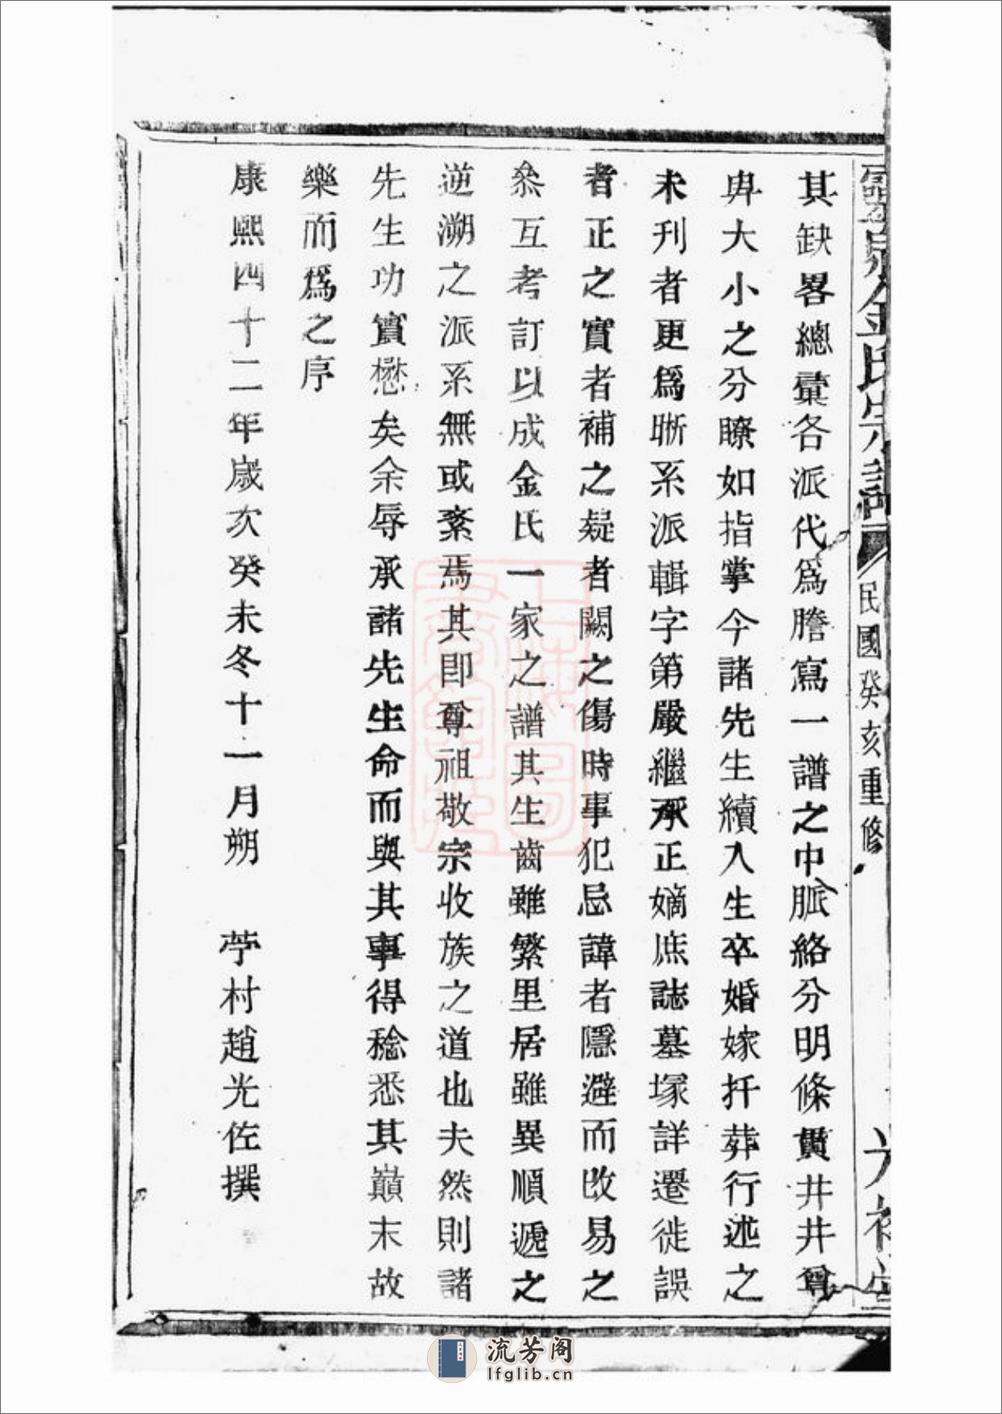 靈泉金氏宗譜 民國癸亥重修
其缺畧總彚各派代爲謄寫一譜之中脈絡分明條貫井井尊
卑大小之分瞭如指掌今諸先生續入生卒婚嫁扦葬行述之
未刊者更爲晰系派輯字第嚴繼承正嫡庶誌墓塚詳遷徙誤
者正之實者補之疑者闕之傷時事犯忌諱者隱避而改易之
叅互考訂以成金氏一家之譜其生齒雖繁里居雖異順遞之
逆溯之派系無或紊焉其卽尊祖敬宗收族之道也夫然則諸
先生功實懋矣余辱承諸先生命而與其事得稔悉其巔末故
樂而爲之序
康熙四十二年歲次癸未冬十一月朔 苧村趙光佐撰
流芳阁
lfglib.cn